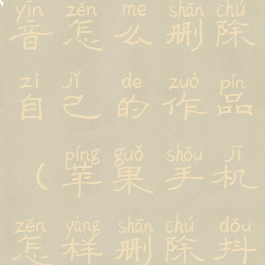 yīn zěn me shān chú
音怎么删除
zì jǐ de zuò pǐn
自己的作品
píng guǒ shǒu jī
（苹果手机
zěn yàng shān chú dǒu
怎样删除抖